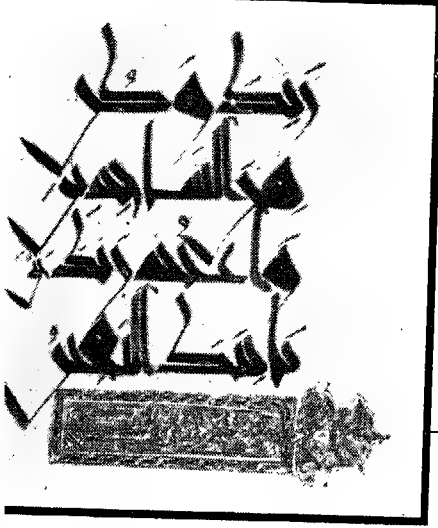 ربك وكن
من الساجدين
واعبد ربك
يأتيك اليقين